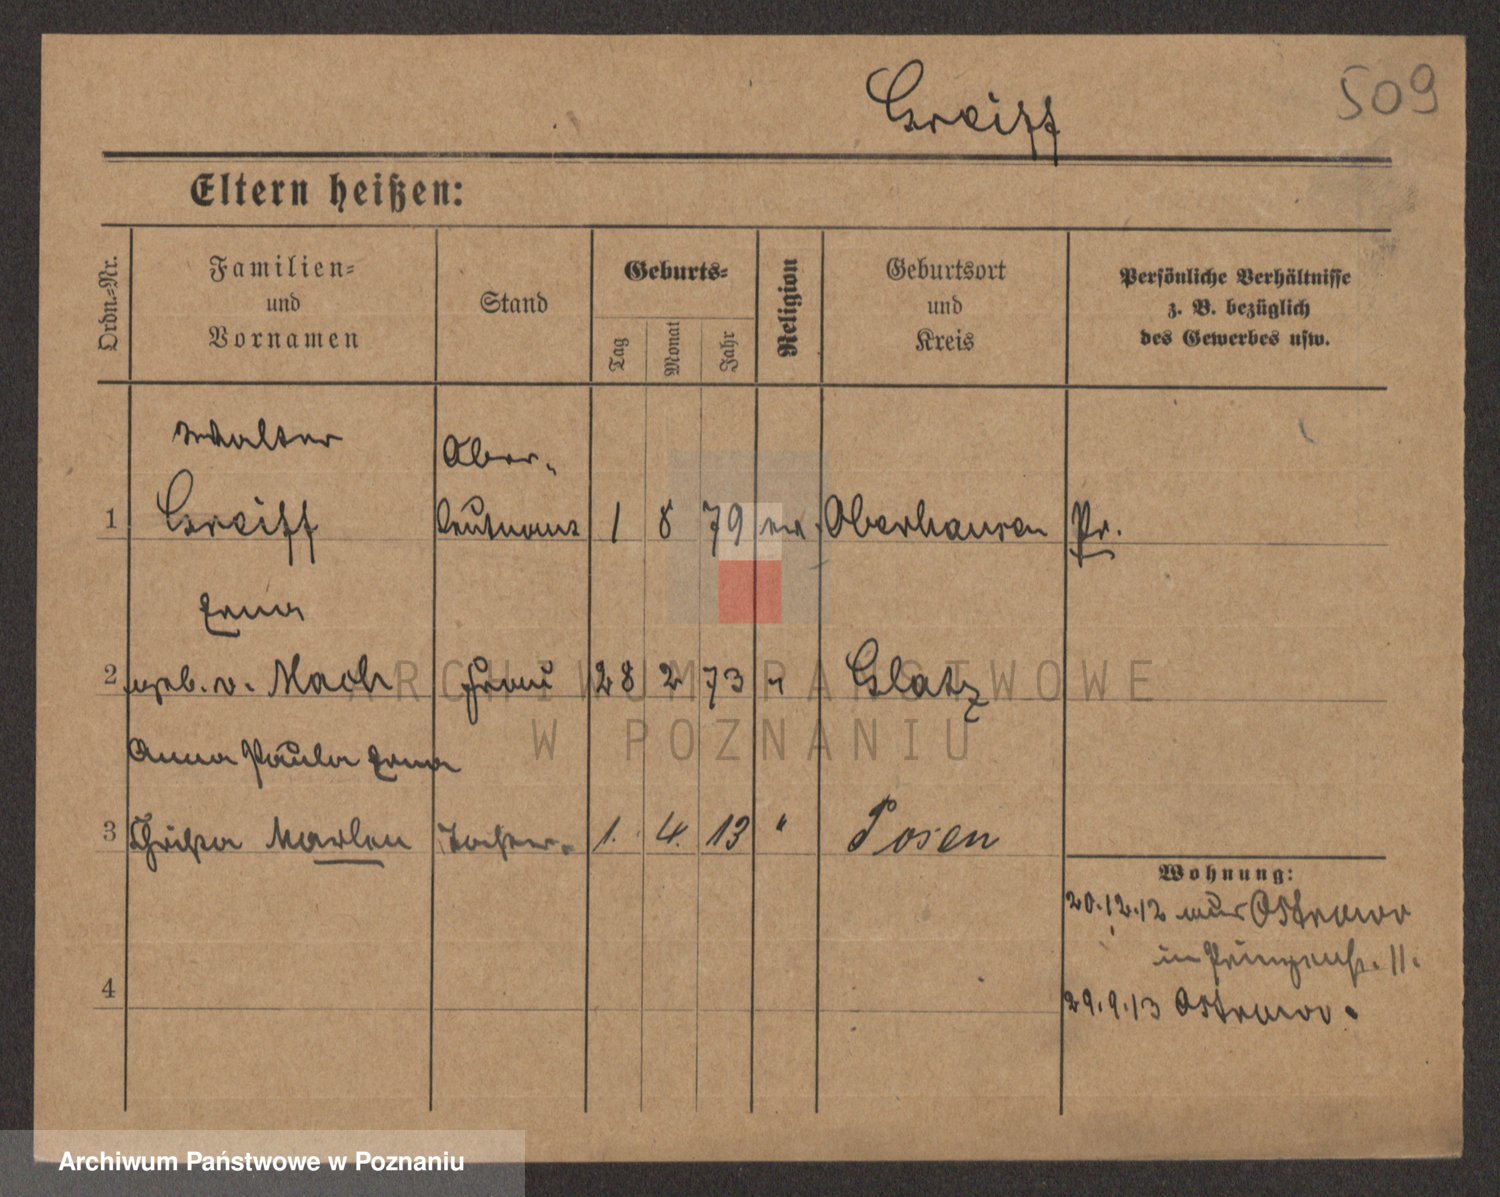 509
Greiff
Eltern heißen:
Ordn.-Nr.
Familien-
und
Vornamen
Stand
Geburts-
Tag
Monat
Jahr
Religion
Geburtsort
und
Kreis
Persönliche Verhältnisse
z. B. bezüglich
des Gewerbes usw.
Walter
Ober-
1 Greiff leutnant 1 8 79 ev. Oberhausen Pr.
Erna
2 geb. v. Mach Frau 28 2 73 " Glatz
Anna Paula Erna
3 Christa Marlen Tochter. 1. 4. 13 " Posen
Wohnung:
20.12.12 aus Ostrowo
in Prinzenstr. 11.
4
29.9.13 Ostrowo.
ARCHIWUM PAŃSTWOWE
W POZNANIU
Archiwum Państwowe w Poznaniu